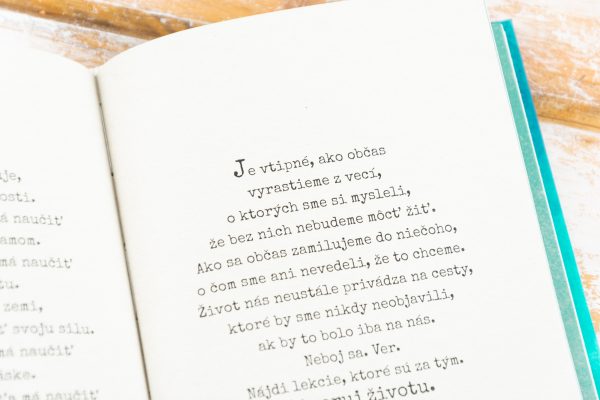 uje,
osti.
má naučiť
amom.
má naučiť
tu.
zemi,
ž svoju silu.
má naučiť
áske.
ťa má naučiť
Je vtipné, ako občas
vyrastieme z vecí,
o ktorých sme si mysleli,
že bez nich nebudeme môcť žiť.
Ako sa občas zamilujeme do niečoho,
o čom sme ani nevedeli, že to chceme.
Život nás neustále privádza na cesty,
ktoré by sme nikdy neobjavili,
ak by to bolo iba na nás.
Neboj sa. Ver.
Nájdi lekcie, ktoré sú za tým.
životu.